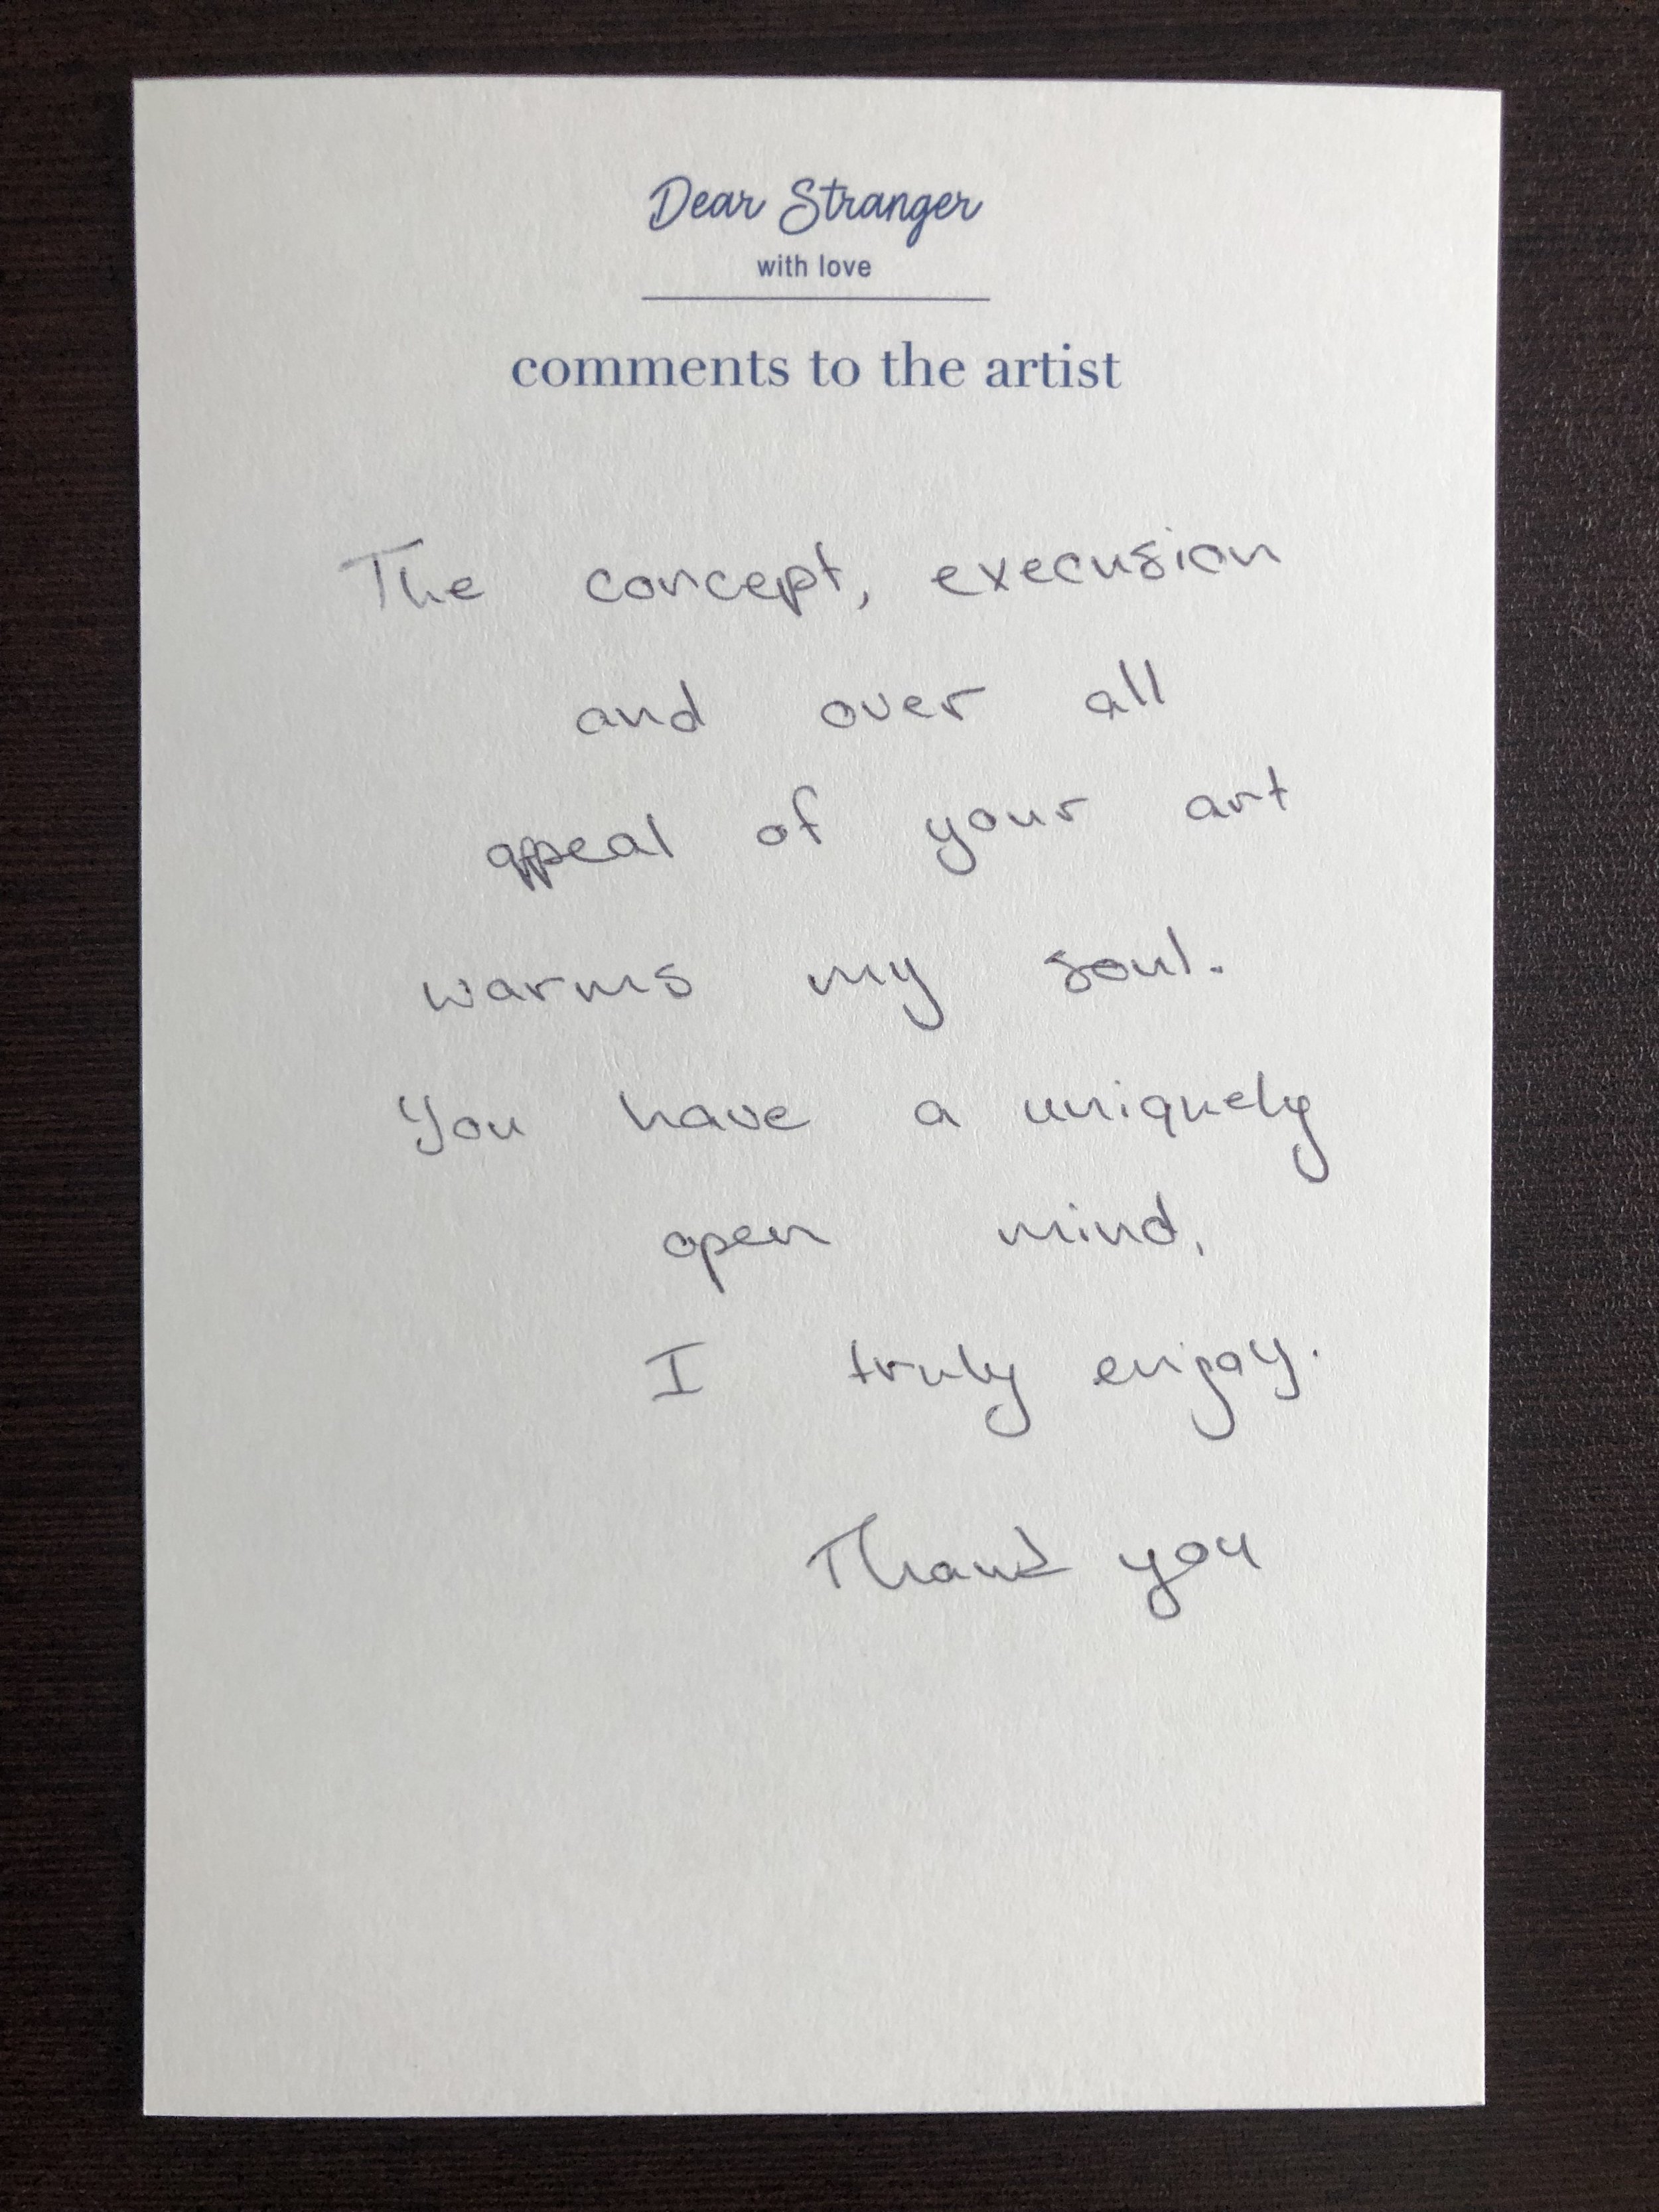 Dear Stranger
with love
comments to the artist
The concept, execusion
and over all
appeal of your art
warms my soul.
You have a uniquely
open mind,
I truly enjoy.
Thank you